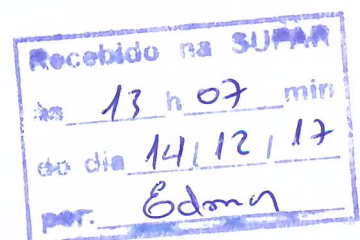 Recebido na SUPAR
às 13 h 07 min
do dia 14/12/17
por: